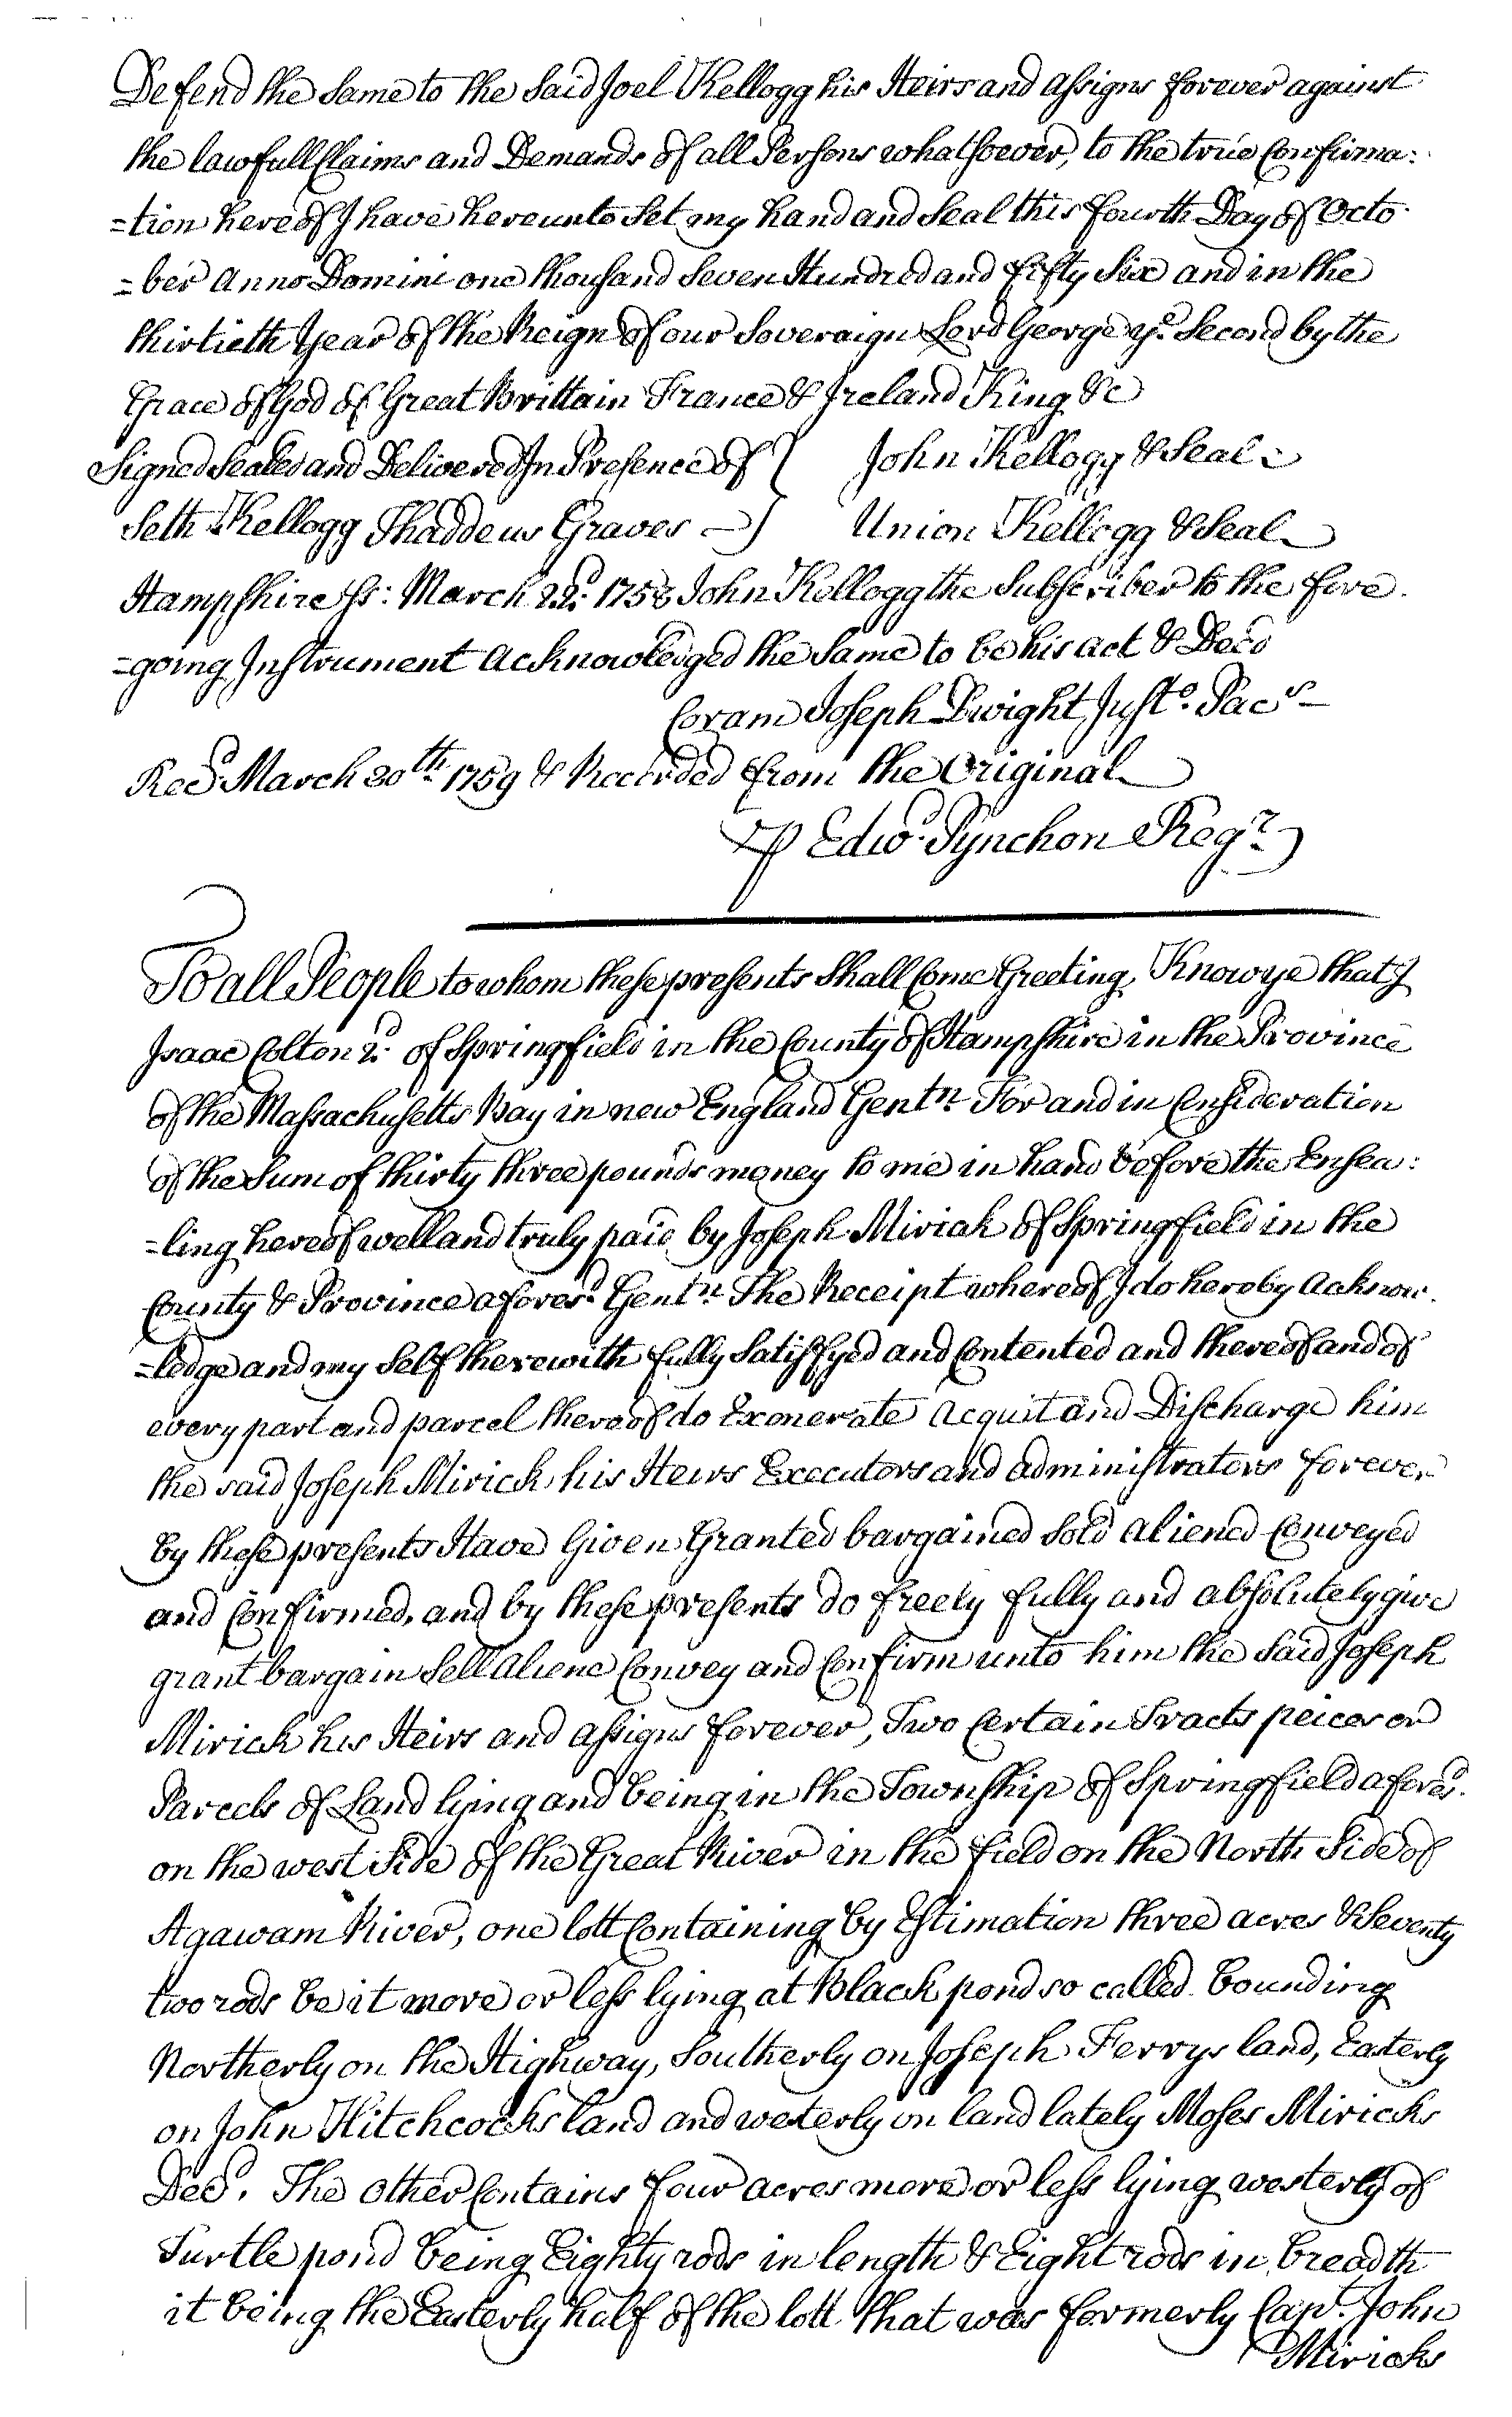 Defend the Same to the Said Joel Kellogg his Heirs and assigns forever against
the lawfull Claims and Demands of all Persons whatsoever, to the true Confirma:
=tion hereof I have hereunto Set my hand and Seal this fourth Day of Octo
=ber Anno Domini one thousand Seven Hundred and fifty Six and in the
thirtieth Year of the Reign of our Soveraign Lord George ye. Second by the
Grace of God of Great Brittain France & Ireland King &c
Signed Sealed and Delivered In Presence of } John Kellogg & Seal
Seth Kellogg Thaddeus Graves } Union Kellogg & Seal
Hampshire Ss: March 22d. 1758 John Kellogg the Subscriber to the fore
=going Instrument Acknowledged the Same to be his act & Deed
Coram Joseph Dwight Justo. Pacs
Recd. March 30th. 1759 & Recorded from the Original
P Edwd. Pynchon Regr.
To all People to whom these presents Shall Come Greeting, Know ye that I
Isaac Colton 2d. of Springfield in the County of Hampshire in the Province
of the Massachusetts Bay in new England Gentn. For and in Consideration
of the Sum of thirty three pounds money to me in hand before the Ensea:
=ling hereof well and truly paid by Joseph Mirick of Springfield in the
County & Province aforesd. Gentn. The Receipt whereof I do hereby Acknow
=ledge and my Self therewith fully Satisfyed and Contented and thereof and of
every part and parcel thereof do Exonerate Acquit and Discharge him
the said Joseph Mirick his Heirs Executors and administrators forever
by these presents Have Given Granted bargained Sold aliened Conveyed
and Confirmed, and by these presents do freely fully and absolutely give
grant bargain Sell aliene Convey and Confirm unto him the Said Joseph
Mirick his Heirs and assigns forever, Two Certain Tracts peices or
Parcels of Land lying and being in the Township of Springfield aforesd.
on the west Side of the Great River in the field on the North Side of
Agawam River, one lott Containing by Estimation three acres & Seventy
two rods be it more or less lying at Black pond so called bounding
Northerly on the Highway, Southerly on Joseph Ferrys land, Easterly
on John Hitchcocks land and westerly on land lately Moses Miricks
Decd. The Other Contains four acres more or less lying westerly of
Turtle pond being Eighty rods in length & Eight rods in breadth
it being the Easterly half of the lott that was formerly Capt. John
Miricks